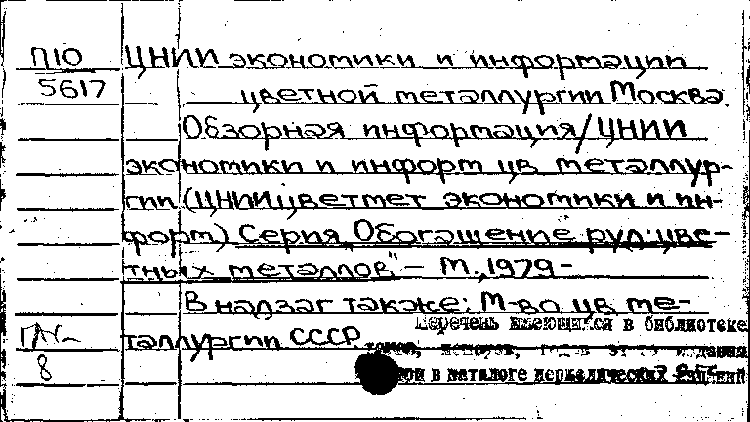 П10
5617
ЦНИИ экономики и информации
цветной металлургии Москва.
Обзорная информация/ЦНИИ
экономики и информ цв металлур-
гии (ЦНИИцветмет экономики и ин-
форм) Серия „Обогащение руд цве-
тных металлов" – М., 1979 –
В надзаг также: М-во цв ме-
таллургии СССР
8
Перечень имеющихся в библиотеке
томов, выпусков, годов этого издания
в каталоге периодических изданий